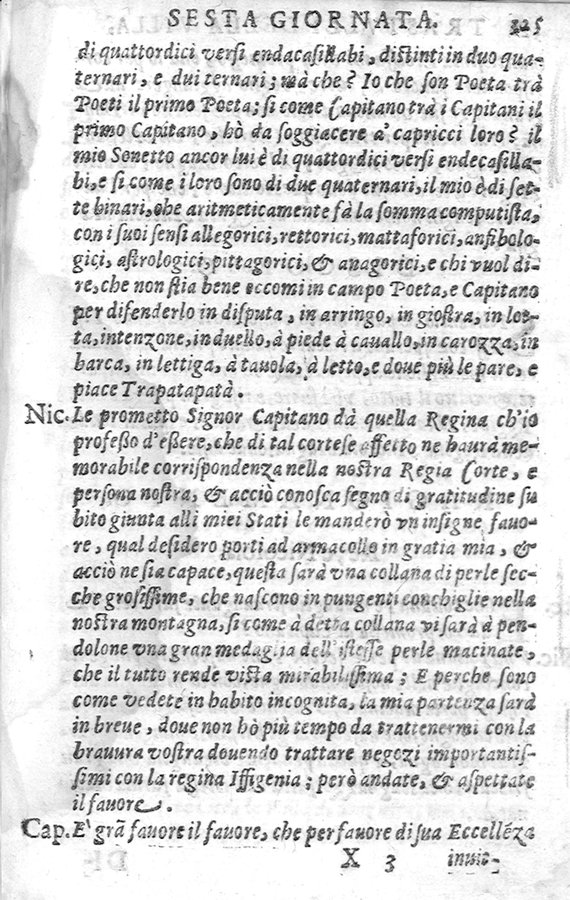 SESTA GIORNATA. 325
di quattordici versi endacasillabi, distinti in duo qua-
ternari, e dui ternari; mà che? Io che son Poeta trà
Poeti il primo Poeta; si come Capitano trà i Capitani il
primo Capitano, hò da soggiacere a' capricci loro? il
mio Sonetto ancor lui è di quattordici versi endecasilla-
bi, e si come i loro sono di due quaternari, il mio è di set-
te binari, che aritmeticamente fà la somma computista,
con i suoi sensi allegorici, rettorici, mattaforici, anfibolo-
gici, astrologici, pittagorici, & anagorici, e chi vuol di-
re, che non stia bene eccomi in campo Poeta, e Capitano
per difenderlo in disputa, in arringo, in giostra, in lot-
ta, intenzone, in duello, à piede à cauallo, in carozza, in
barca, in lettiga, à tauola, à letto, e doue più le pare, e
piace Trapatapatà.
Nic. Le prometto Signor Capitano dà quella Regina ch'io
professo d'essere, che di tal cortese affetto ne haurà me-
morabile corrispondenza nella nostra Regia Corte, e
persona nostra, & acciò conosca segno di gratitudine su
bito giunta alli miei Stati le manderò vn insigne fauo-
re, qual desidero porti ad armacollo in gratia mia, &
acciò ne sia capace, questa sarà vna collana di perle sec-
che grosissime, che nascono in pungenti conchiglie nella
nostra montagna, si come à detta collana vi sarà à pen-
dolone vna gran medaglia dell'istesse perle macinate,
che il tutto rende vista mirabilissima; E perche sono
come vedete in habito incognita, la mia partenza sarà
in breue, doue non hò più tempo da trattenermi con la
brauura vostra douendo trattare negozi importantis-
simi con la regina Iffigenia; però andate, & aspettate
il fauore.
Cap. E' grã fauore il fauore, che per fauore di sua Eccellẽza
X 3 inuit-